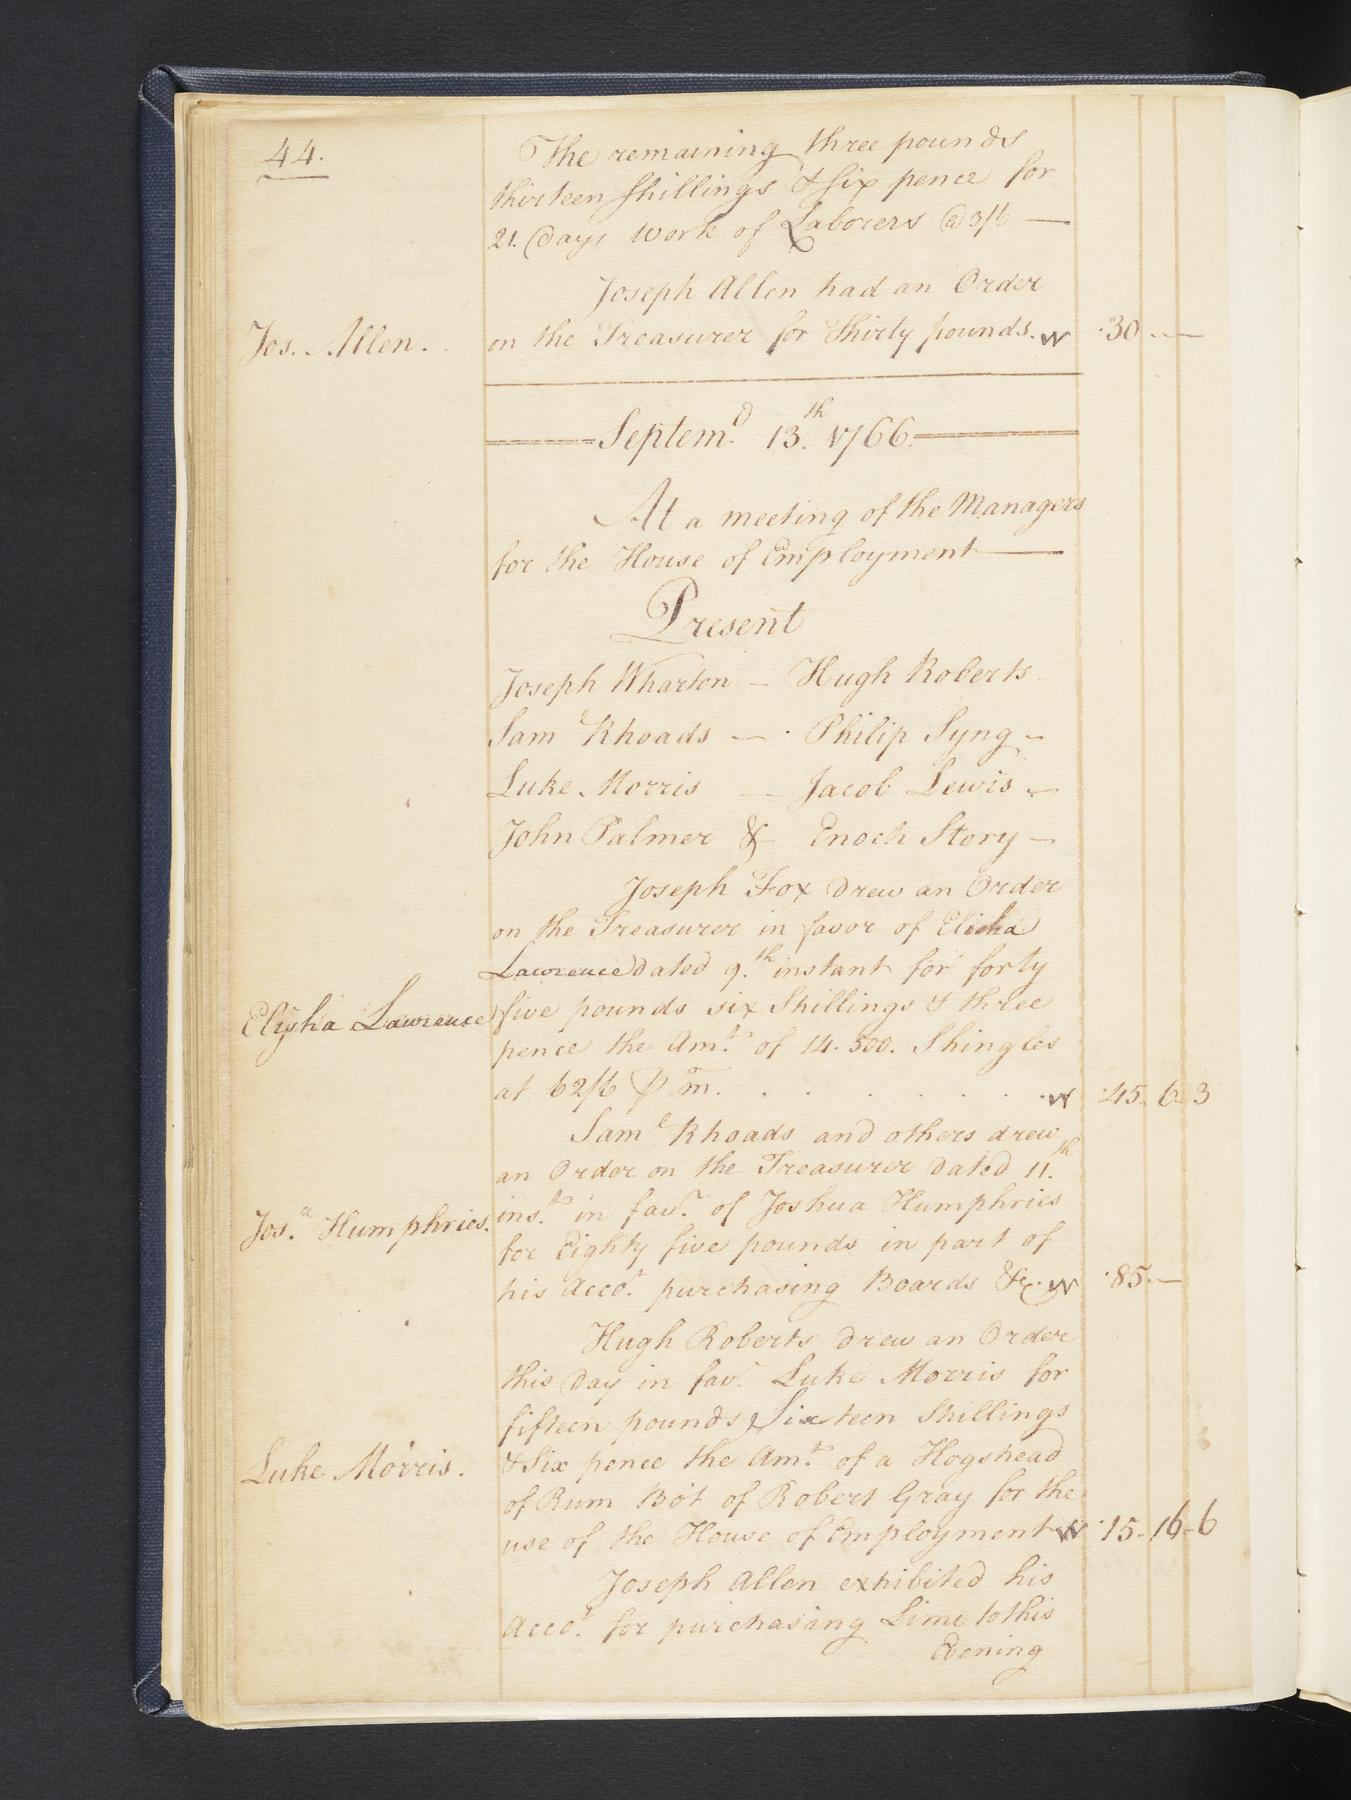 44.
The remaining three pounds
thirteen shillings & six pence for
21. Days work of Laborers @ 3/6 —
Joseph Allen had an Order
Jos. Allen. on the Treasurer for Thirty pounds. w 30 — —
Septem.r 13.th 1766.
At a meeting of the Managers
for the House of Employment —
Present
Joseph Wharton — Hugh Roberts
Sam.l Rhoads — Philip Syng —
Luke Morris — Jacob Lewis —
John Palmer & Enoch Story —
Joseph Fox drew an Order
on the Treasurer in favor of Elisha
Lawrence dated 9.th instant for forty
Elijsha Lawrence five pounds six Shillings & three
pence the Am.t of 14.500. Shingles
at 62/6 ⅌ m. w 45. 6. 3
Sam.l Rhoads and others drew
an Order on the Treasurer dated 11.th
Jos.a Humphries. ins.t in fav.r of Joshua Humphries
for Eighty five pounds in part of
his Acco.t purchasing Boards &c. w 85. —
Hugh Roberts drew an Order
this Day in fav.r Luke Morris for
fifteen pounds, Sixteen Shillings
Luke Morris. & Six pence the Am.t of a Hogshead
of Rum Bo't of Robert Gray for the
use of the House of Employment w 15 - 16 - 6
Joseph Allen exhibited his
Acco.t for purchasing Lime to this
Evening